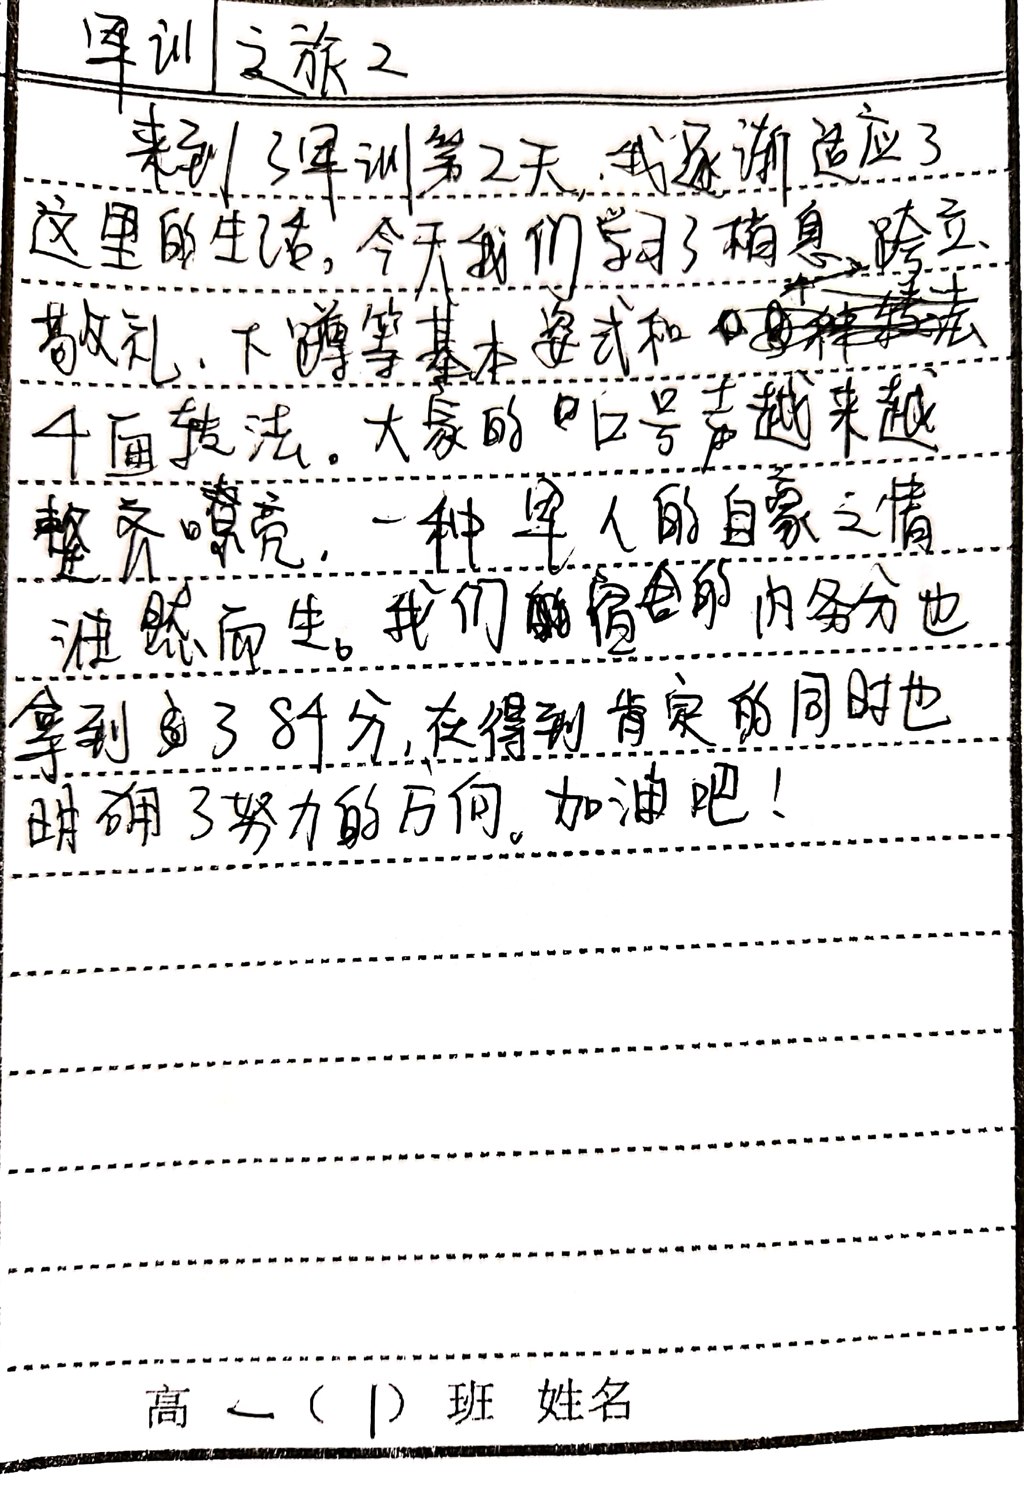 军训之旅2
来到了军训第2天,我逐渐适应了
这里的生活,今天我们学习了稍息、跨立、
敬礼、下蹲等基本姿式和
4面转法。大家的口号声越来越
整齐嘹亮,一种军人的自豪之情
油然而生。我们宿舍的内务分也
拿到了84分,在得到肯定的同时也
明确了努力的方向。加油吧!
高一(1)班 姓名